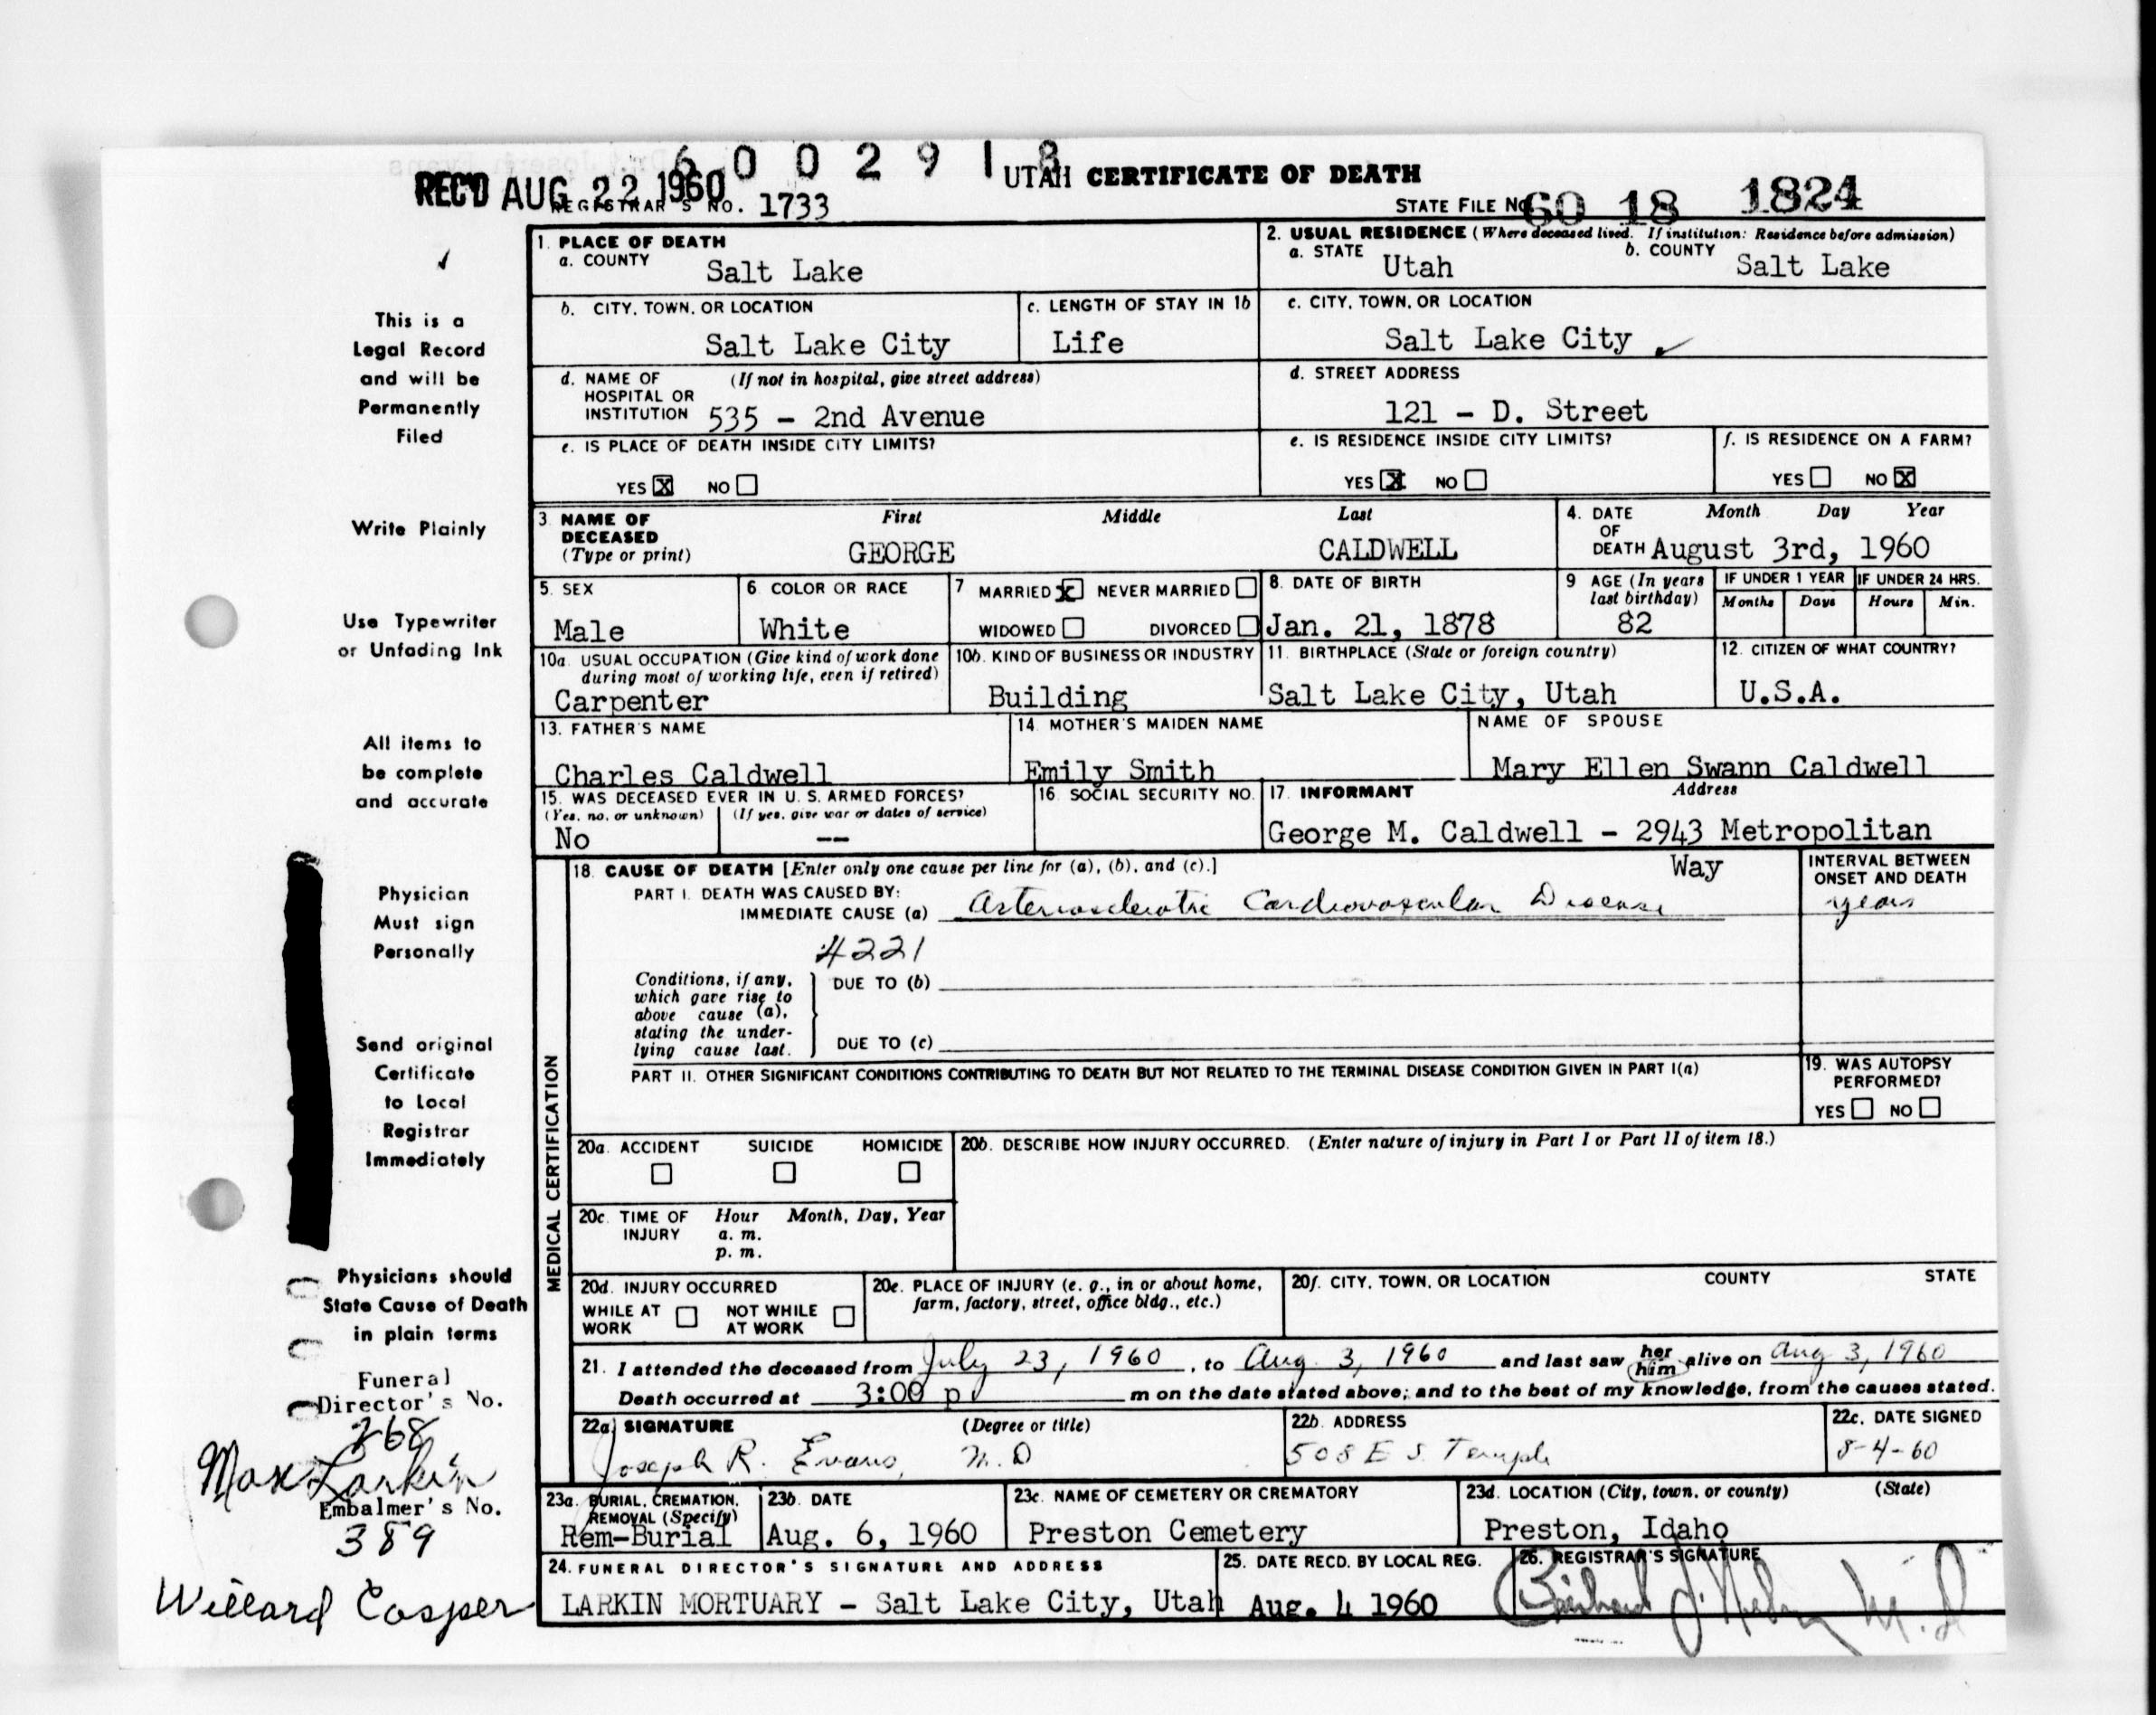 6 0 0 2 9 1 8
REC'D AUG 22 1960
UTAH CERTIFICATE OF DEATH
REGISTRAR'S NO. 1733
STATE FILE NO. 60 18 1824
This is a
Legal Record
and will be
Permanently
Filed
Write Plainly
Use Typewriter
or Unfading Ink
All items to
be complete
and accurate
Physician
Must sign
Personally
Send original
Certificate
to Local
Registrar
Immediately
Physicians should
State Cause of Death
in plain terms
Funeral
Director's No.
268
Max Larkin
Embalmer's No.
389
Willard Cosper
1. PLACE OF DEATH
a. COUNTY
Salt Lake
2. USUAL RESIDENCE (Where deceased lived. If institution: Residence before admission)
a. STATE Utah b. COUNTY Salt Lake
b. CITY, TOWN, OR LOCATION
Salt Lake City
c. LENGTH OF STAY IN 1b
Life
c. CITY, TOWN, OR LOCATION
Salt Lake City
d. NAME OF (If not in hospital, give street address)
HOSPITAL OR
INSTITUTION 535 - 2nd Avenue
d. STREET ADDRESS
121 - D. Street
e. IS PLACE OF DEATH INSIDE CITY LIMITS?
YES X NO
e. IS RESIDENCE INSIDE CITY LIMITS?
YES X NO
f. IS RESIDENCE ON A FARM?
YES NO X
3 NAME OF DECEASED (Type or print)
First Middle Last
GEORGE CALDWELL
4. DATE OF DEATH
Month Day Year
August 3rd, 1960
5. SEX
Male
6. COLOR OR RACE
White
7 MARRIED X NEVER MARRIED
WIDOWED DIVORCED
8. DATE OF BIRTH
Jan. 21, 1878
9 AGE (In years last birthday)
82
IF UNDER 1 YEAR
Months Days
IF UNDER 24 HRS.
Hours Min.
10a. USUAL OCCUPATION (Give kind of work done
during most of working life, even if retired)
Carpenter
10b. KIND OF BUSINESS OR INDUSTRY
Building
11. BIRTHPLACE (State or foreign country)
Salt Lake City, Utah
12. CITIZEN OF WHAT COUNTRY?
U.S.A.
13. FATHER'S NAME
Charles Caldwell
14. MOTHER'S MAIDEN NAME
Emily Smith
NAME OF SPOUSE
Mary Ellen Swann Caldwell
15. WAS DECEASED EVER IN U.S. ARMED FORCES?
(Yes, no, or unknown) (If yes, give war or dates of service)
No --
16. SOCIAL SECURITY NO.
17. INFORMANT Address
George M. Caldwell - 2943 Metropolitan
Way
MEDICAL CERTIFICATION
18. CAUSE OF DEATH [Enter only one cause per line for (a), (b), and (c).]
INTERVAL BETWEEN
ONSET AND DEATH
PART I. DEATH WAS CAUSED BY:
IMMEDIATE CAUSE (a) Arteriosclerotic Cardiovascular Disease years
4221
Conditions, if any,
which gave rise to
above cause (a),
stating the under-
lying cause last.
DUE TO (b)
DUE TO (c)
PART II. OTHER SIGNIFICANT CONDITIONS CONTRIBUTING TO DEATH BUT NOT RELATED TO THE TERMINAL DISEASE CONDITION GIVEN IN PART I(a)
19. WAS AUTOPSY
PERFORMED?
YES NO
20a. ACCIDENT SUICIDE HOMICIDE
20b. DESCRIBE HOW INJURY OCCURRED. (Enter nature of injury in Part I or Part II of item 18.)
20c. TIME OF INJURY
Hour Month, Day, Year
a. m.
p. m.
20d. INJURY OCCURRED
WHILE AT WORK NOT WHILE AT WORK
20e. PLACE OF INJURY (e. g., in or about home,
farm, factory, street, office bldg., etc.)
20f. CITY, TOWN, OR LOCATION COUNTY STATE
21. I attended the deceased from July 23, 1960, to Aug. 3, 1960 and last saw her him alive on Aug 3, 1960
Death occurred at 3:00 p m on the date stated above; and to the best of my knowledge, from the causes stated.
22a. SIGNATURE (Degree or title)
Joseph R. Evans, M.D
22b. ADDRESS
508 E S. Temple
22c. DATE SIGNED
8-4-60
23a. BURIAL, CREMATION,
REMOVAL (Specify)
Rem-Burial
23b. DATE
Aug. 6, 1960
23c. NAME OF CEMETERY OR CREMATORY
Preston Cemetery
23d. LOCATION (City, town, or county) (State)
Preston, Idaho
24. FUNERAL DIRECTOR'S SIGNATURE AND ADDRESS
LARKIN MORTUARY - Salt Lake City, Utah
25. DATE RECD. BY LOCAL REG.
Aug. 4 1960
26. REGISTRAR'S SIGNATURE
M.D